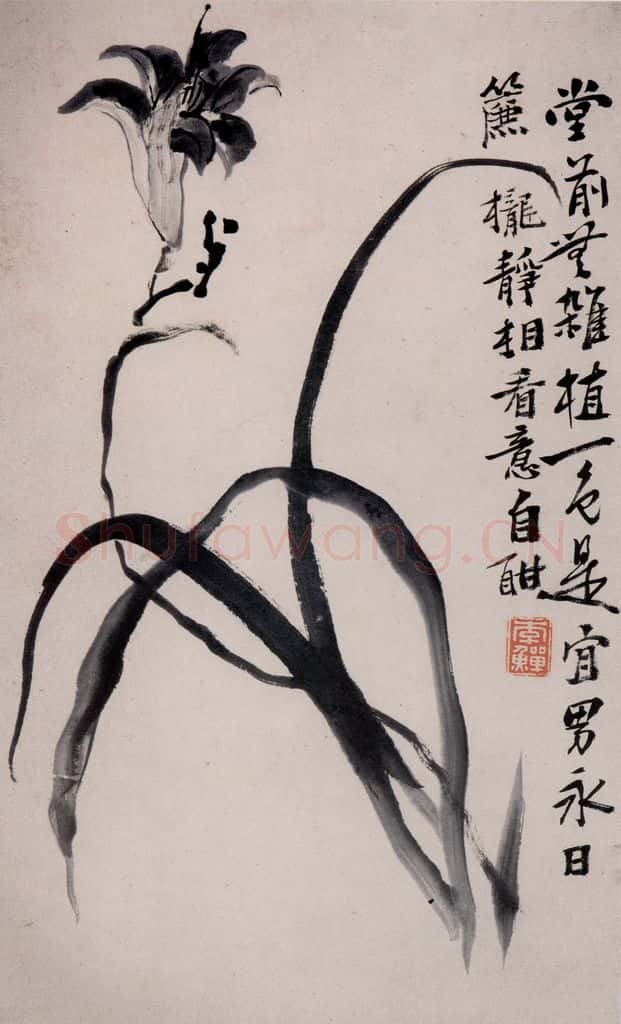 堂前無雜植一色是宜男永日
簾櫳靜相看意自酣
李鱓
Shufawang.CN